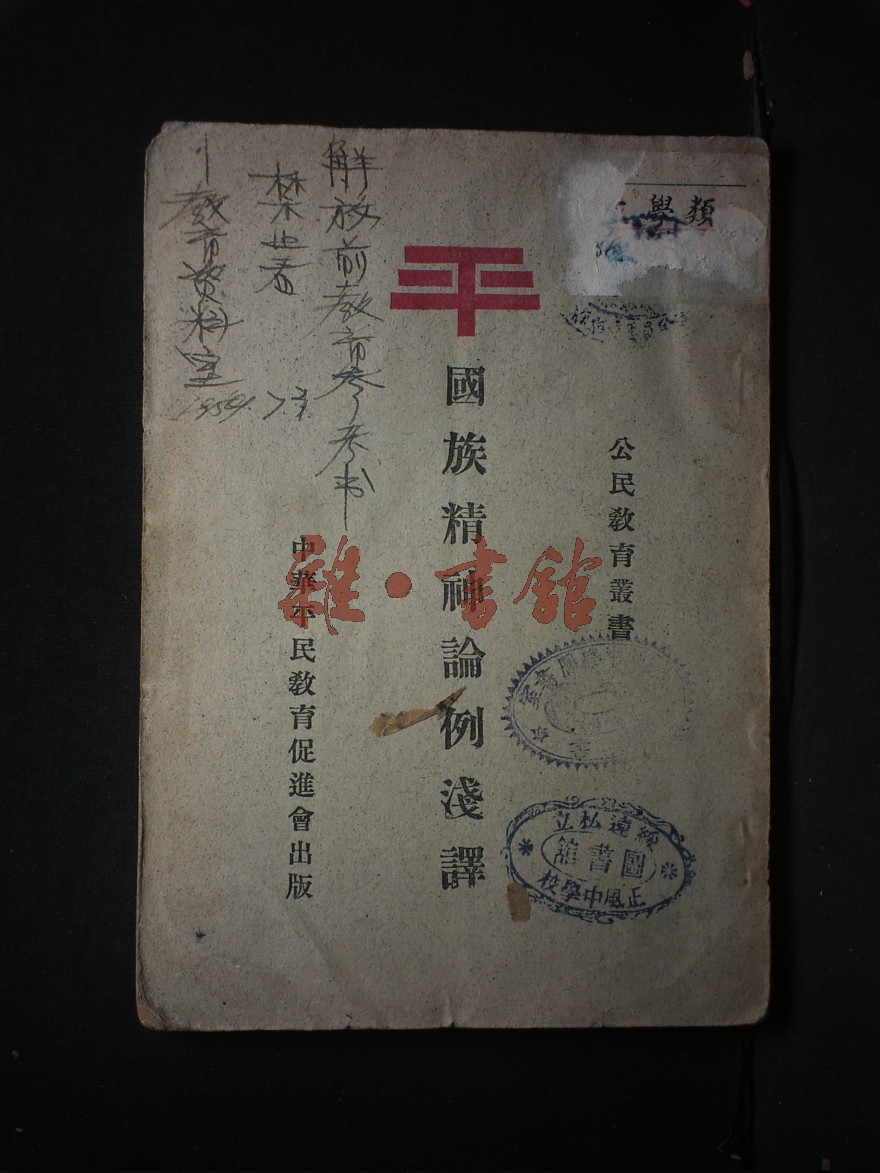 類學
公民教育叢書
平
國族精神論例淺譯
中華平民教育促進會出版
解放前教育参考书
禁止看
教育資料室
綏遠私立
圖書館
正風中學校
雜·書館